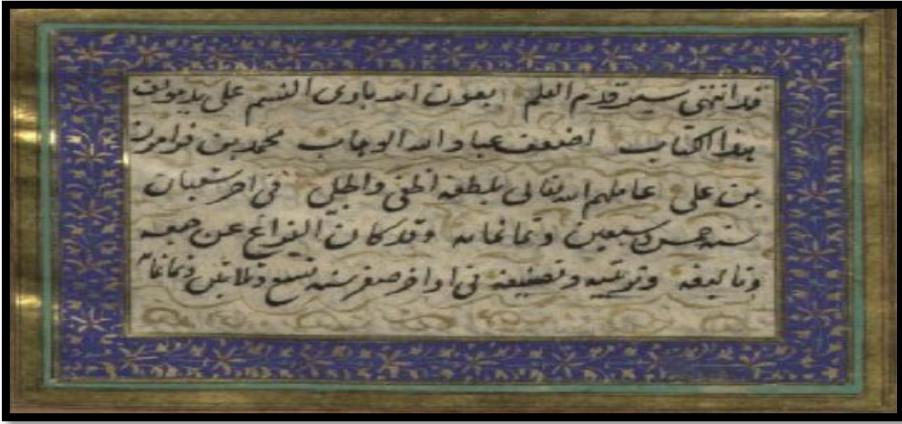 قد انتهى سير قدم القلم بعون الله بارى النسم على يد مؤلف
هذا الكتاب اضعف عباد الله الوهاب محمد بن فرامرز
بن على عاملهم الله تعالى بلطفه الخفى والجلى فى اخر شعبان
سنه خمس وسبعين وثمانمايه وقد كان الفراغ عن جمعه
وتاليفه وترتيبه وتصنيفه فى اواخر صفر سنه تسع وثلاثين وثمانمايه